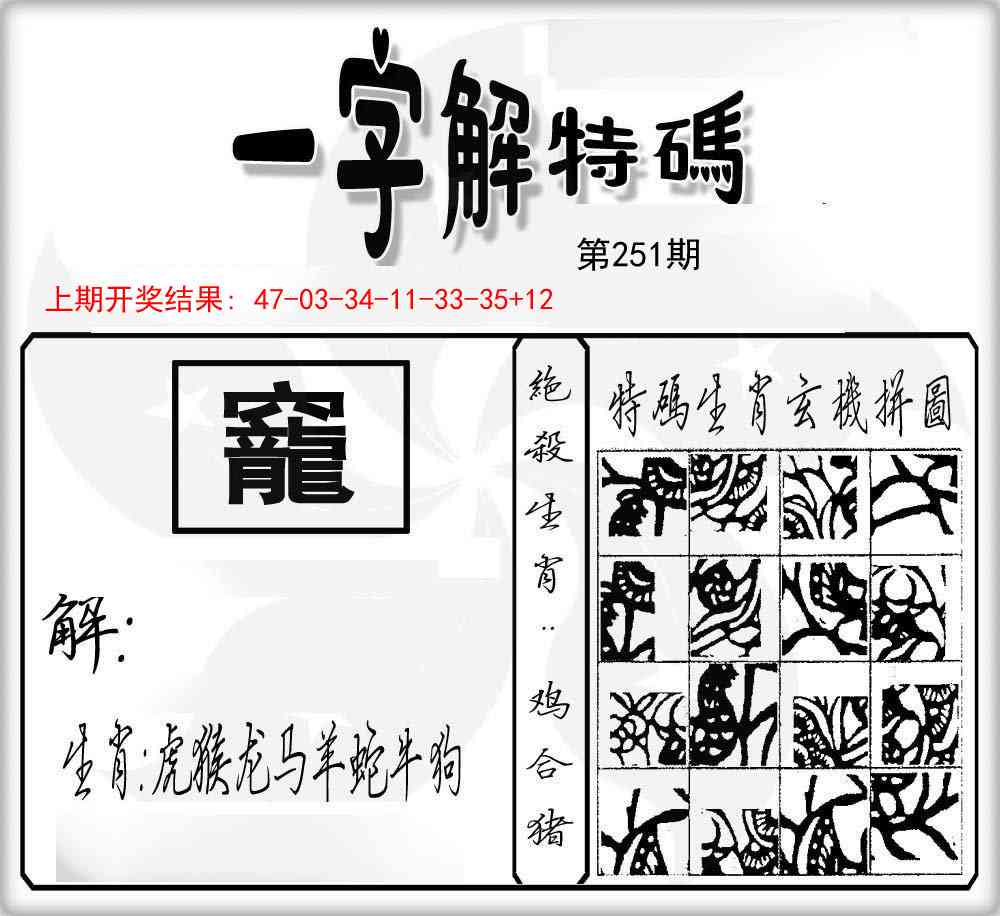 一字解特碼
第251期
上期开奖结果: 47-03-34-11-33-35+12
竉
解:
生肖:虎猴龙马羊蛇牛狗
絶殺生肖:鸡合猪
特碼生肖玄機拼圖